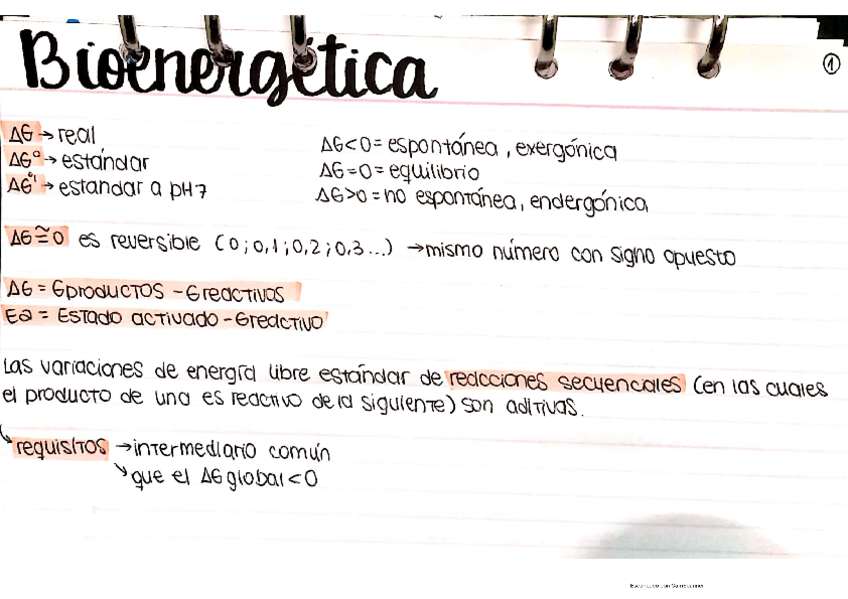 Bioenergética
①
ΔG → real
ΔG° → estándar
ΔG°' → estandar a pH7
ΔG<0 = espontánea, exergónica
ΔG=0 = equilibrio
ΔG>0 = no espontánea, endergónica
ΔG≅0 es reversible (0;0,1;0,2;0,3...) → mismo número con signo opuesto
ΔG = Gproductos - Greactivos
Ea = Estado activado - Greactivo
Las variaciones de energía libre estándar de reacciones secuenciales (en las cuales
el producto de una es reactivo de la siguiente) son aditivas.
requisitos → intermediario común
↘ que el ΔG global<0
Escaneado con CamScanner